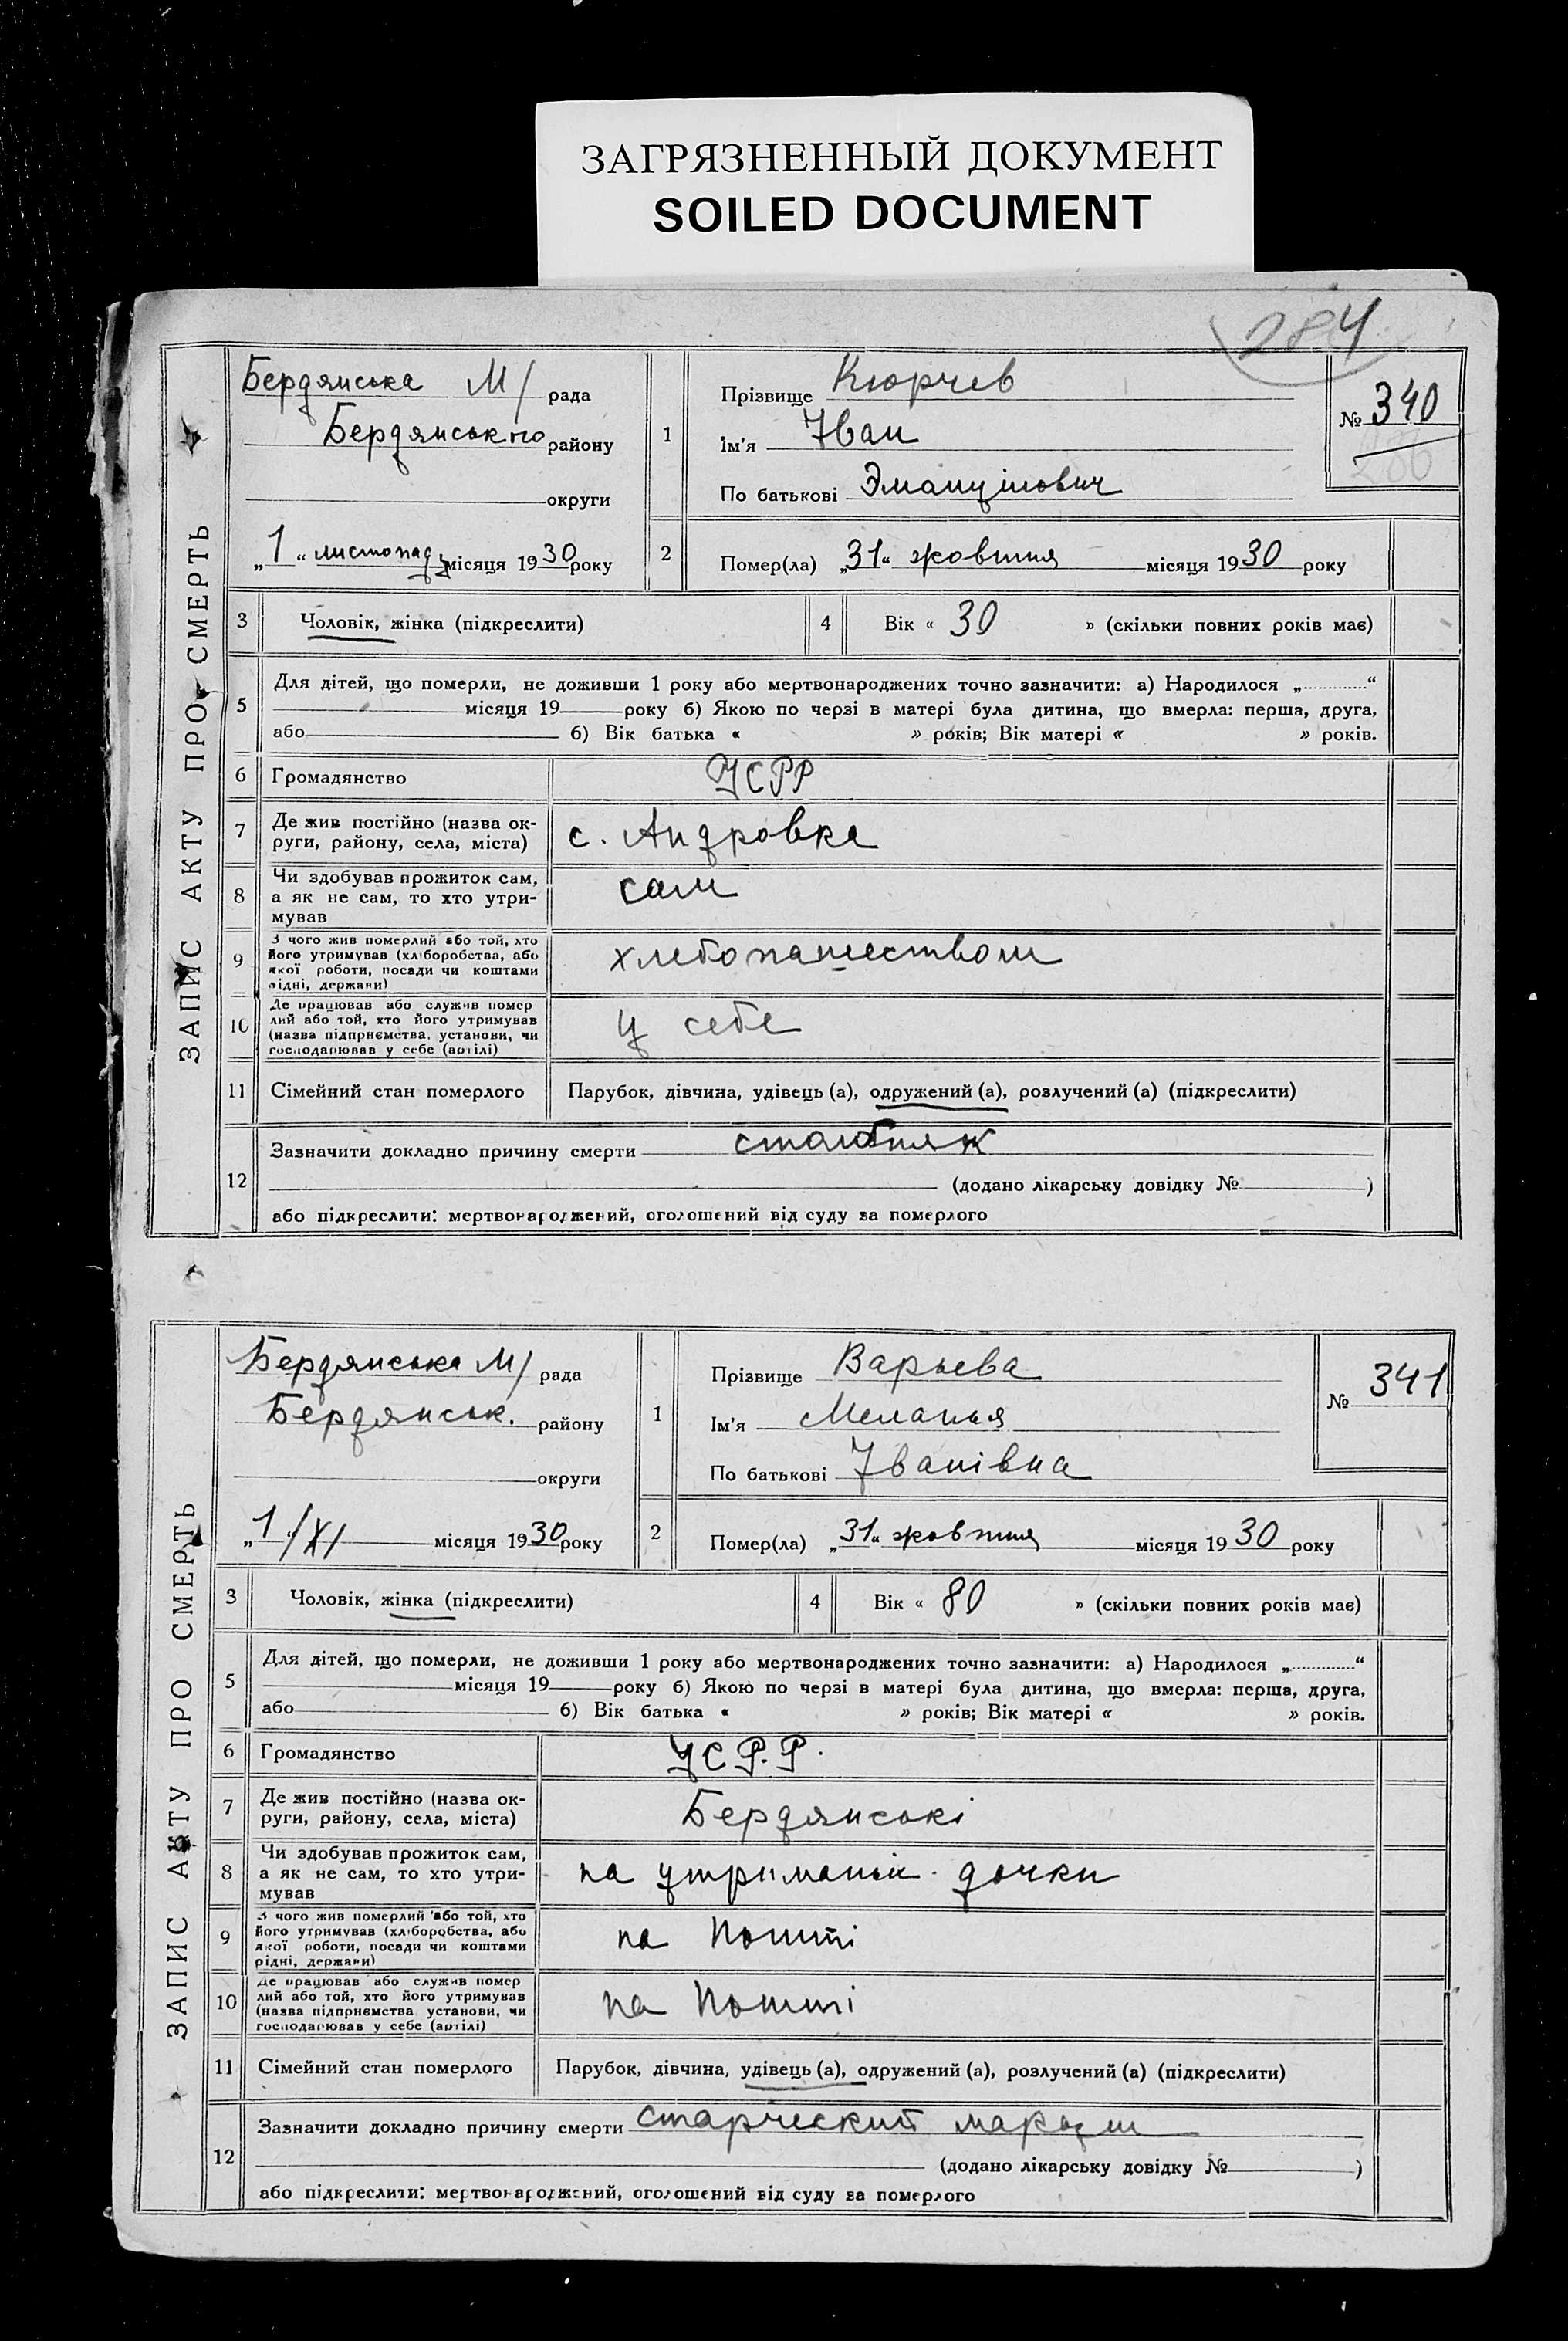 ЗАГРЯЗНЕННЫЙ ДОКУМЕНТ
SOILED DOCUMENT
284
ЗАПИС АКТУ ПРО СМЕРТЬ
Бердянська М/ рада
Бердянського району
округи
„1“ листопаду місяця 1930 року
1
Прізвище Кюрчев
Ім'я Іван
По батькові
№ 340
2
Помер(ла) „31“ жовтня місяця 1930 року
3 Чоловік, жінка (підкреслити)
4 Вік « 30 » (скільки повних років має)
5 Для дітей, що померли, не доживши 1 року або мертвонароджених точно зазначити: а) Народилося „ “
місяця 19 року б) Якою по черзі в матері була дитина, що вмерла: перша, друга,
або б) Вік батька « » років; Вік матері « » років.
6 Громадянство УСРР
7 Де жив постійно (назва ок-
руги, району, села, міста) с. Андровка
8 Чи здобував прожиток сам,
а як не сам, то хто утри-
мував сам
9 З чого жив померлий або той, хто
його утримував (хліборобства, або
якої роботи, посади чи коштами
рідні, держави) хлебопашеством
10 Де працював або служив помер
лий або той, хто його утримував
(назва підприємства, установи, чи
господарював у себе (артілі) у себе
11 Сімейний стан померлого Парубок, дівчина, удівець (а), одружений (а), розлучений (а) (підкреслити)
12 Зазначити докладно причину смерти столбняк
(додано лікарську довідку № )
або підкреслити: мертвонароджений, оголошений від суду за померлого
ЗАПИС АКТУ ПРО СМЕРТЬ
Бердянська М/ рада
Бердянськ. району
округи
„1/XI місяця 1930 року
1
Прізвище Варьева
Ім'я Меланья
По батькові Іванівна
№ 341
2
Помер(ла) „31“ жовтня місяця 1930 року
3 Чоловік, жінка (підкреслити)
4 Вік « 80 » (скільки повних років має)
5 Для дітей, що померли, не доживши 1 року або мертвонароджених точно зазначити: а) Народилося „ “
місяця 19 року б) Якою по черзі в матері була дитина, що вмерла: перша, друга,
або б) Вік батька « » років; Вік матері « » років.
6 Громадянство УСР.Р.
7 Де жив постійно (назва ок-
руги, району, села, міста) Бердянські
8 Чи здобував прожиток сам,
а як не сам, то хто утри-
мував на дочки
9 З чого жив померлий або той, хто
його утримував (хліборобства, або
якої роботи, посади чи коштами
рідні, держави) на пошті
10 Де працював або служив помер
лий або той, хто його утримував
(назва підприємства, установи, чи
господарював у себе (артілі) на пошті
11 Сімейний стан померлого Парубок, дівчина, удівець (а), одружений (а), розлучений (а) (підкреслити)
12 Зазначити докладно причину смерти старческий
(додано лікарську довідку № )
або підкреслити: мертвонароджений, оголошений від суду за померлого